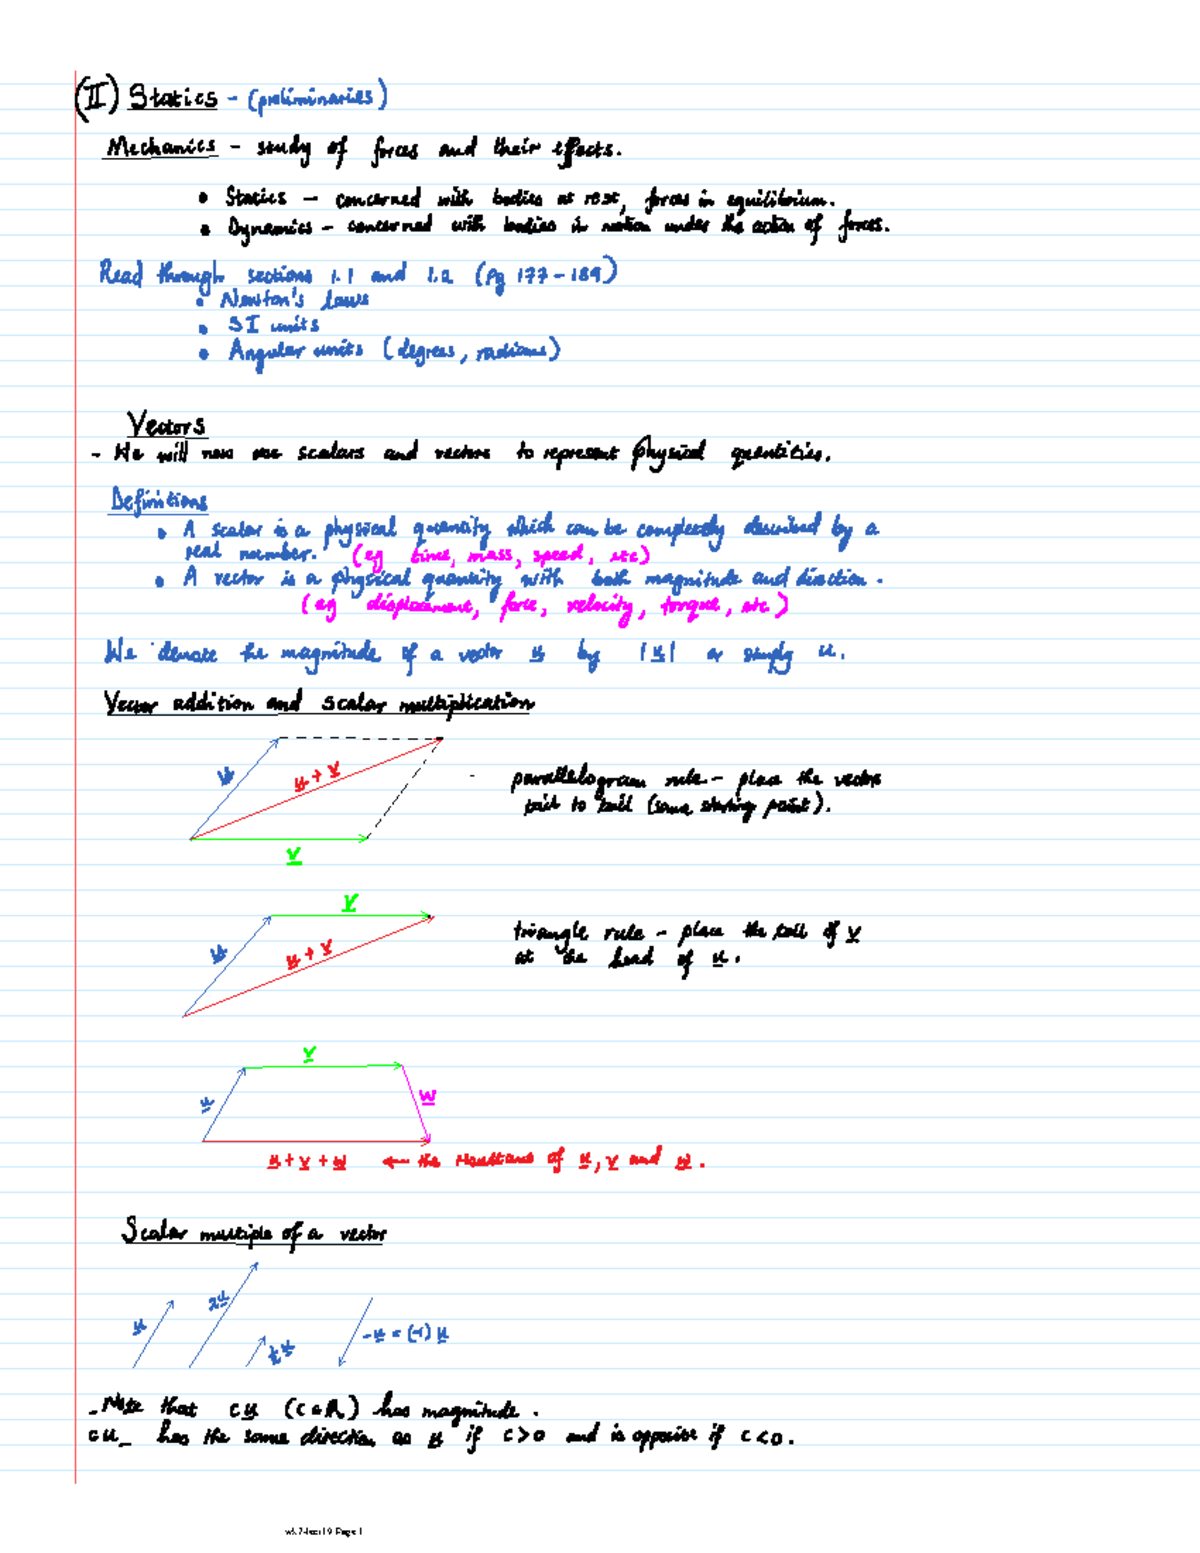 (II) Statics - (preliminaries)
Mechanics - study of forces and their effects.
• Statics - concerned with bodies at rest, forces in equilibrium.
• Dynamics - concerned with bodies in motion under the action of forces.
Read through sections 1.1 and 1.2 (Pg 177-189)
• Newton's laws
• SI units
• Angular units (degrees, radians)
Vectors
- We will now use scalars and vectors to represent physical quantities.
Definitions
• A scalar is a physical quantity which can be completely described by a
real number. (eg time, mass, speed, etc)
• A vector is a physical quantity with both magnitude and direction.
(eg displacement, force, velocity, torque, etc)
We denote the magnitude of a vector u by |u| or simply u.
Vector addition and scalar multiplication
u
u + v
v
parallelogram rule - place the vectors
tail to tail (same starting point).
v
u
u + v
triangle rule - place the tail of v
at the head of u.
v
u
w
u + v + w ← the resultant of u, v and w.
Scalar multiple of a vector
u
2u
½u
-u = (-1) u
- Note that cu (c∈R) has magnitude.
cu_ has the same direction as u if c>0 and is opposite if c<0.
wk 7-lect 19 Page 1